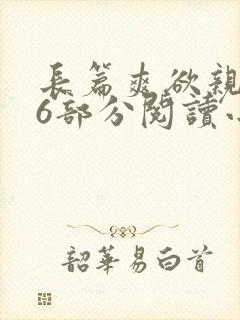 長篇爽欲親
6部分閱讀
韶華易白首